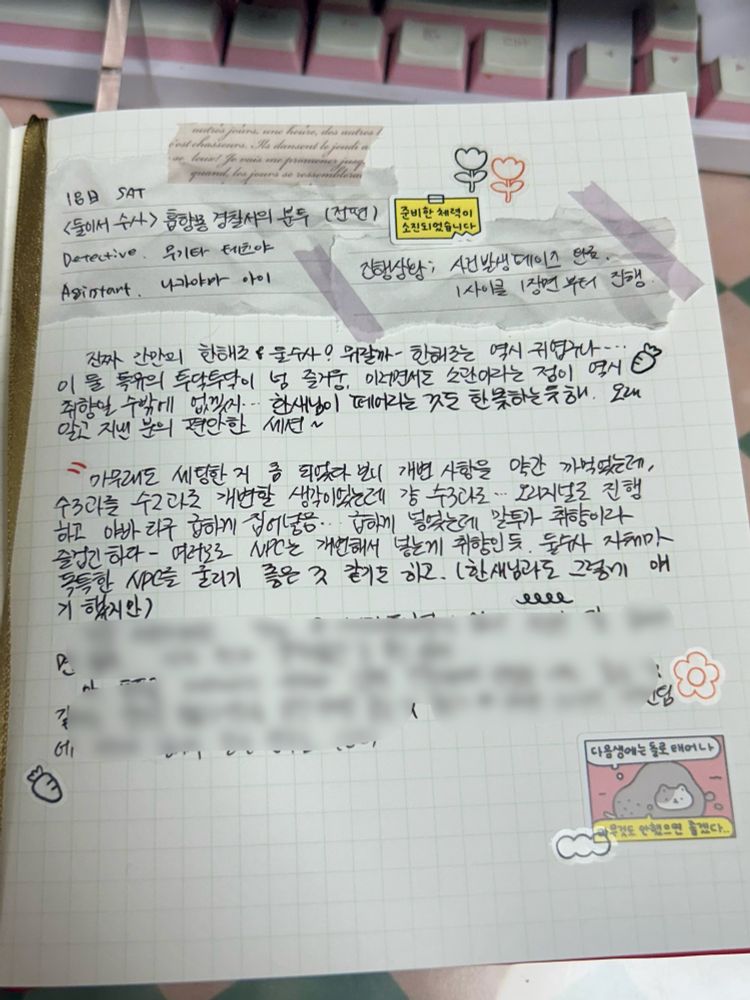 autres jours, une heure, des autres h
c'est chasseurs. Ils dansent le jeudi a
se toux! Je vais me promener jusq
quand, les jours se ressembleraie
18日 SAT
<둘이서 수사> 흡혈용 경찰서의 분투 (전편)
준비한 체력이
소진되었습니다
Detective. 우기타 테츠야
Assistant. 나카야마 아이
진행상황; 사건발생 페이즈 완료.
1사이클 1장면부터 진행.
진짜 간만의 한해조 & 둘수사? 뭐랄까- 한해조는 역시 귀엽구나....
이 둘 특유의 투닥투닥이 넘 즐거웅, 이러면서도 소란이라는 점이 역시
취향일 수밖에 없겠지... 한새님이 페어라는 것도 한몫하는듯해. 오래
알고 지낸 분의 편안한 세션~
아무래도 세팅한 거 좀 되었다 보니 개변 사항을 약간 까먹었는데,
수3과를 수2과로 개변할 생각이었는데 걍 수3과로... 오리지널로 진행
하고 아바라구 급하게 집어넣음... 급하게 넣었는데 말투가 취향이라
즐겁긴 하다- 여러모로 NPC는 개변해서 넣는게 취향인듯. 둘수사 자체가
독특한 NPC를 굴리기 좋은 것 같기도 하고. (한새님과도 그렇게 얘
기 했지만)
다음생에는 돌로 태어나
아무것도 안했으면 좋겠다..